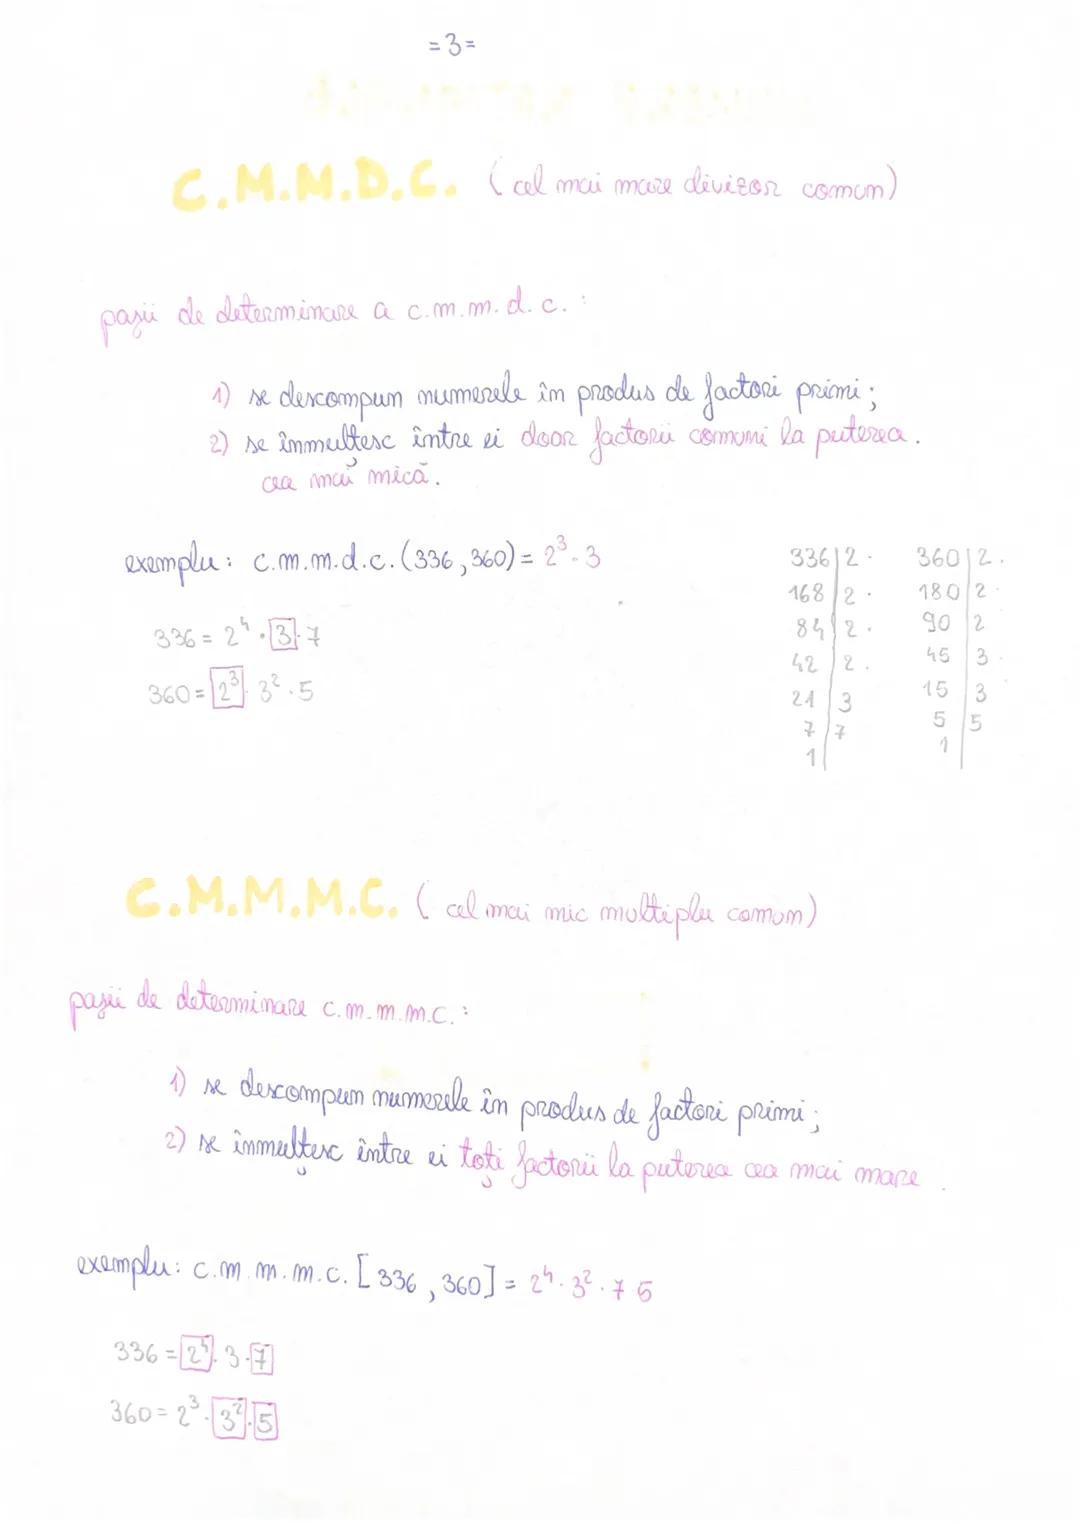 =3=
C.M.M.D.C. (cel mai mare divizor comun)
pașii de determinare a c.m.m.d.c.:
1) se descompun numerele în produs de factori primi;
2) se înmulțesc între ei doar factorii comuni la puterea
cea mai mică.
exemplu: c.m.m.d.c.(336,360)= 2³·3
336 = 2⁴·3·7
360 = 2³·3²·5
336|2
168|2
84|2
42|2
21|3
7|7
1|
360|2
180|2
90|2
45|3
15|3
5|5
1|
C.M.M.M.C. (cel mai mic multiplu comun)
pașii de determinare c.m.m.m.c.:
1) se descompun numerele în produs de factori primi;
2) se înmulțesc între ei toți factorii la puterea cea mai mare.
exemplu: c.m.m.m.c.[336,360] = 2⁴·3²·7·5
336 = 2⁴·3·7
360 = 2³·3²·5